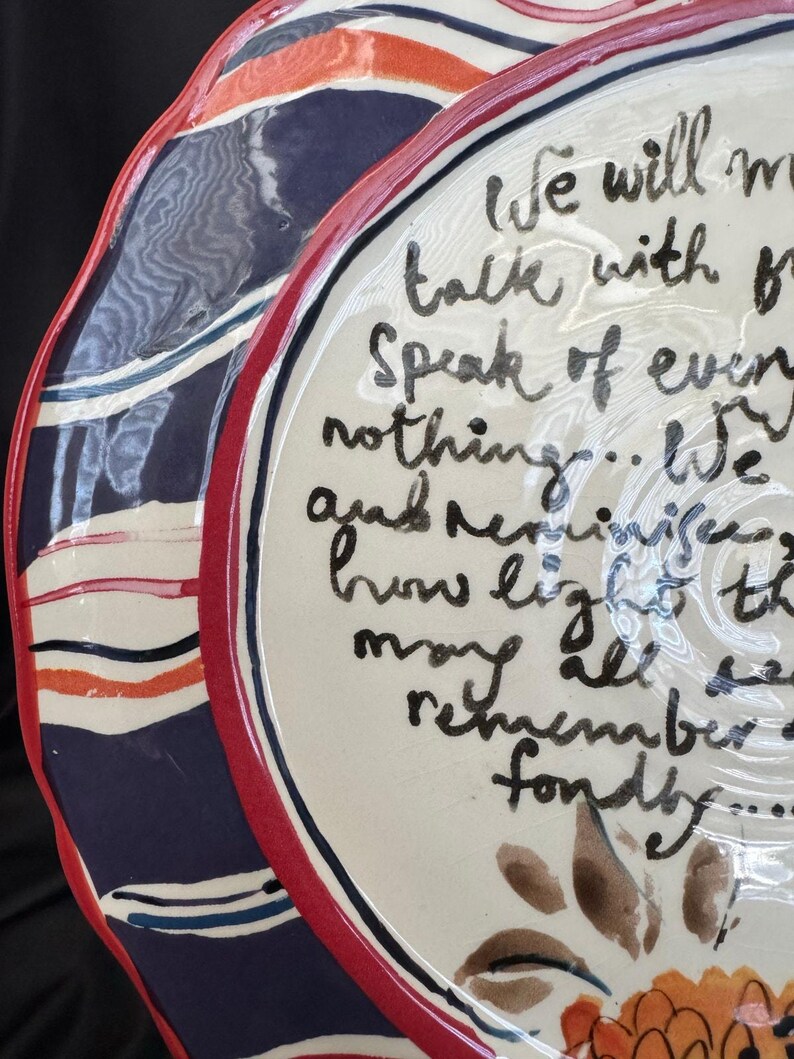 We will m
talk with fr
Speak of every
nothing... We
and reminisce,
how light th
may all see
remember
fondly....